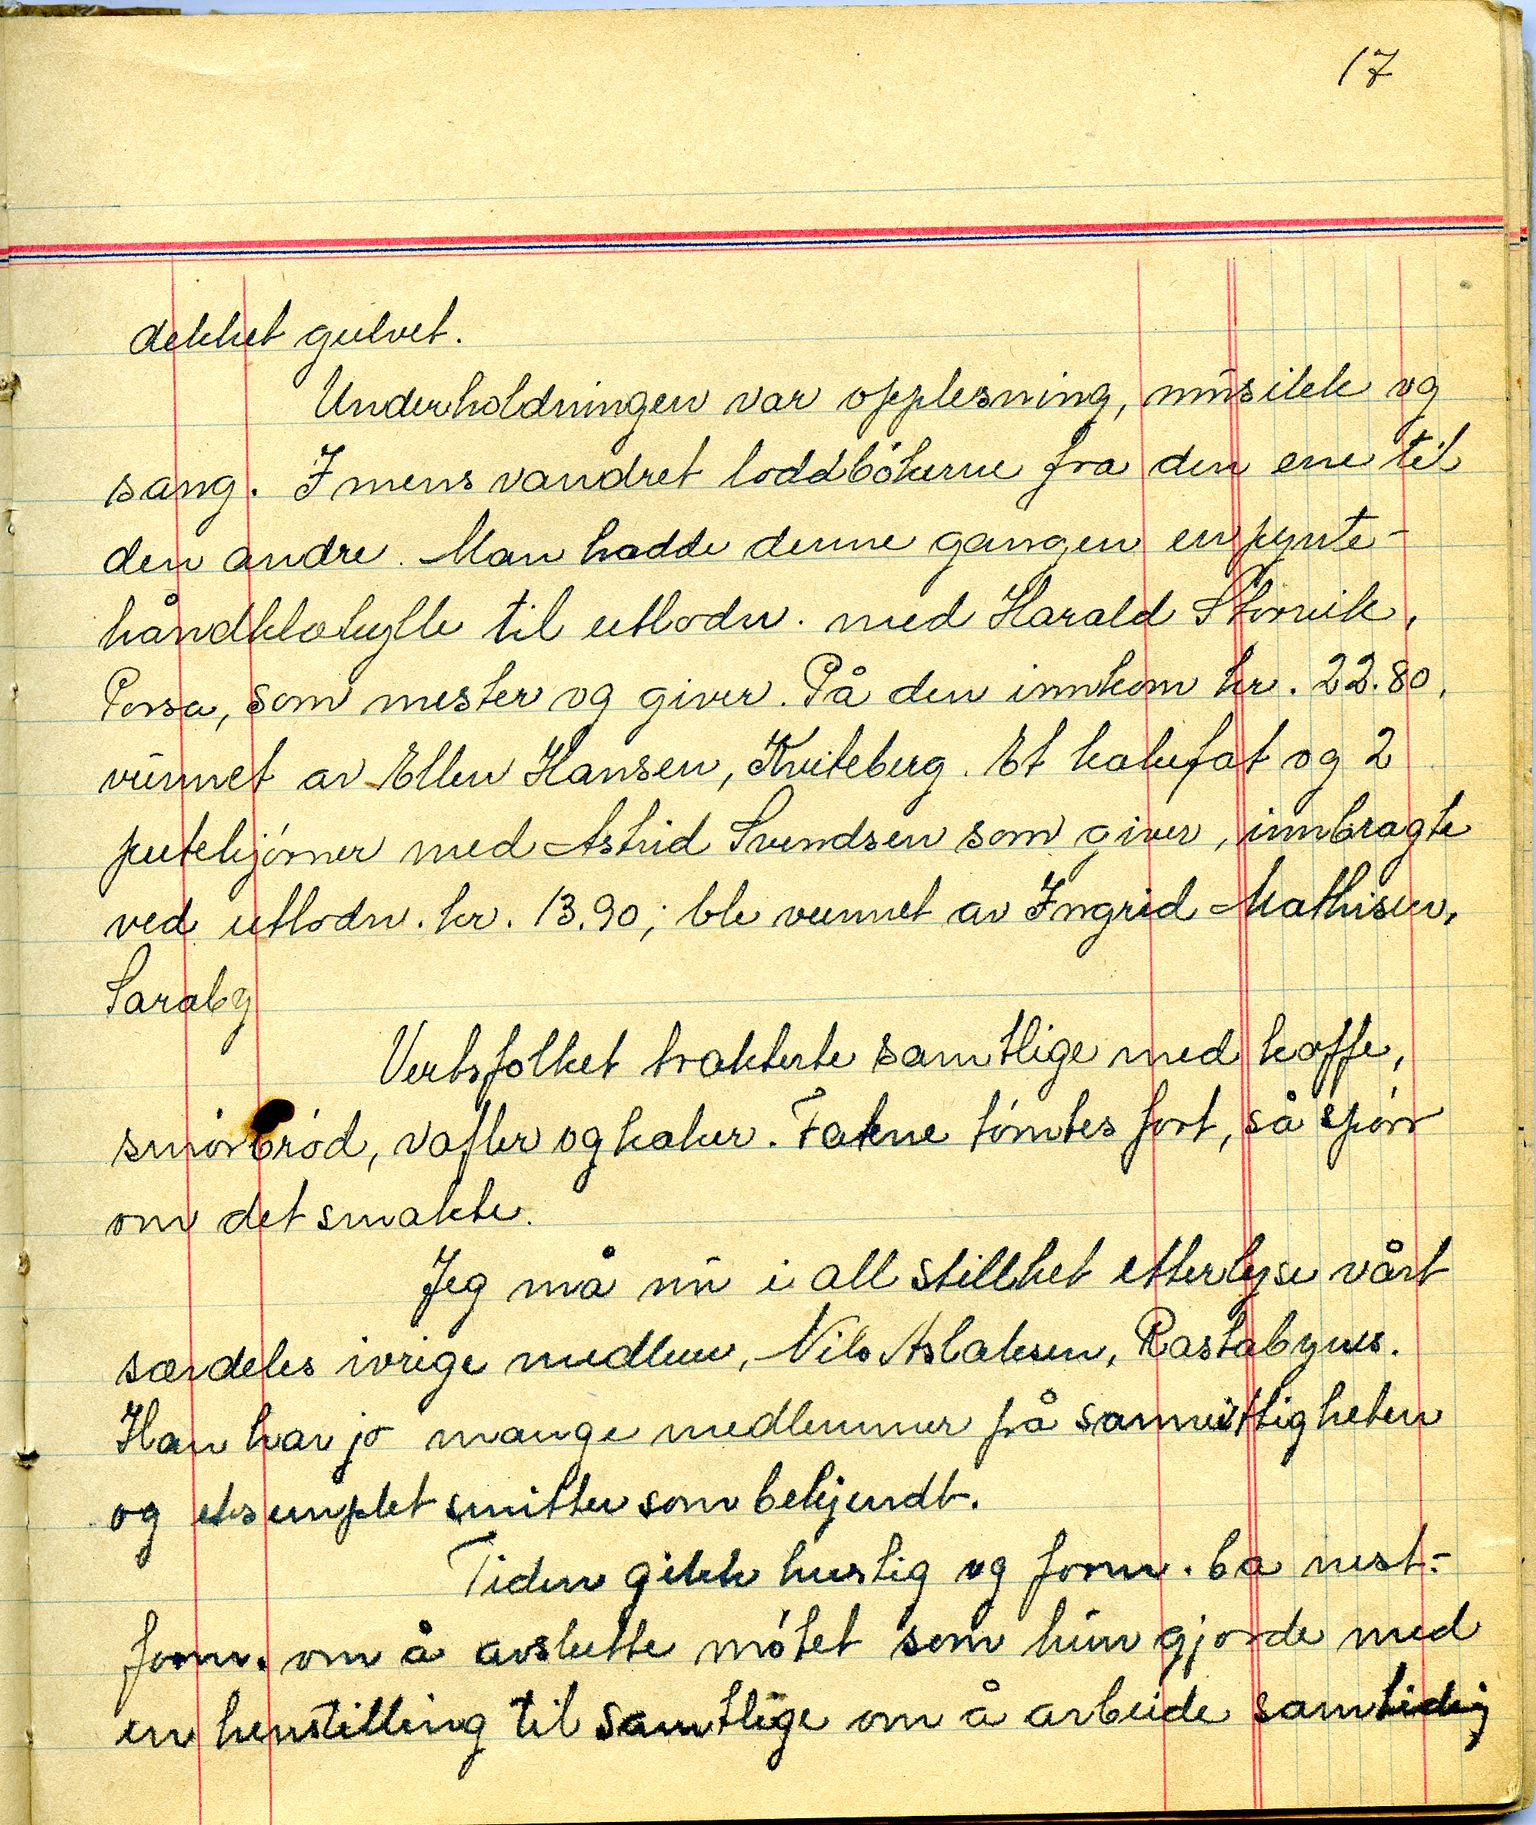 17
dekket gulvet.
Underholdningen var opplesning, musikk og
sang. Imens vandret loddbökerne fra den ene til
den andre. Man hadde denne gangen en pynte-
håndklæhylle til utlodn. med Harald Storvik,
Porsa, som mester og giver. På den innkom kr. 22.80,
vunnet av Ellen Hansen, Kviteberg. Et kakefat og 2
putehjörner med Astrid Svendsen som giver, innbragte
ved utlodn. kr. 13.90; ble vunnet av Ingrid Mathisen,
Saraby
Vertsfolket trakterte samtlige med kaffe,
smörbröd, vafler og kaker. Fatene tömtes fort, så spörr
om det smakte.
Jeg må nu i all stillhet etterlyse vårt
særdeles ivrige medlem, Nils Aslaksen, Rastabynes.
Han har jo mange medlemmer på samvittigheten
og eksemplet smitter som bekjendt.
Tiden gikk hurtig og form. ba nest-
form. om å avslutte mötet som hun gjorde med
en henstilling til samtlige om å arbeide samtidig